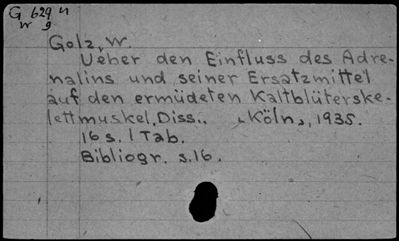 G 629 n
w 9
Golz, W.
Ueber den Einfluss des Adre-
nalins und seiner Ersatzmittel
auf den ermüdeten Kaltblüterske-
lettmuskel. Diss., Köln, 1935.
16 s. 1 Tab.
Bibliogr. s. 16.